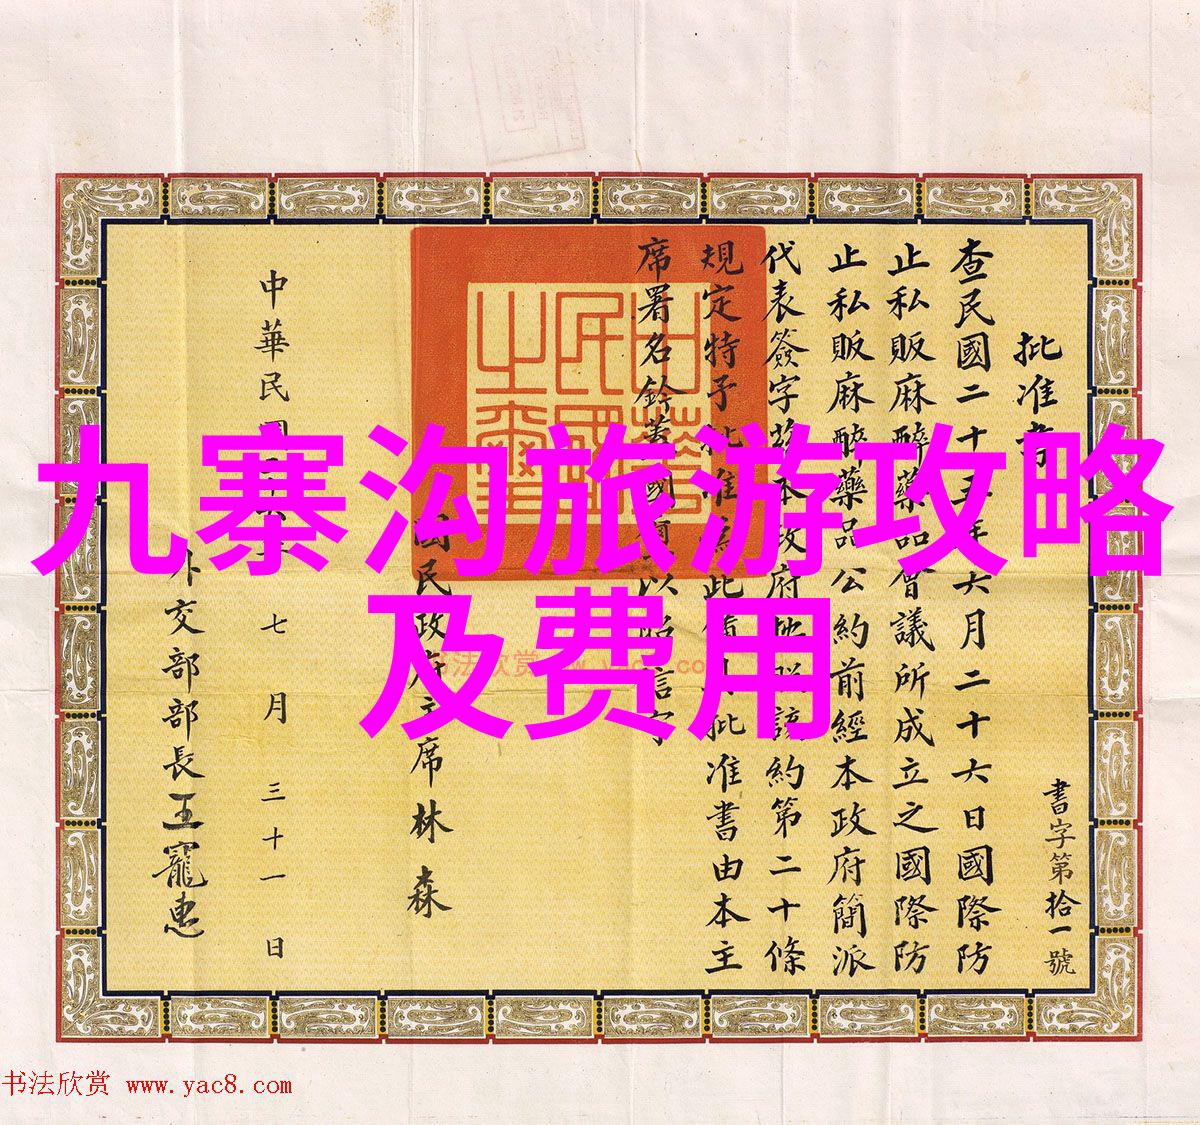 九寨沟旅游攻略
及费用
批准書
書字第拾一號
查民國二十五年六月二十六日國際防
止私販麻醉藥品會議所成立之國際防
止私販麻醉藥品公約前經本政府簡派
代表簽字茲本政府 該約第二十條
規定特予批准為此備具批准書由本主
席署名鈐蓋國璽以昭信守
國民政府主席林森
中華民國 七月三十一日
外交部部長王寵惠
中華民國之璽
書法欣赏 www.yac8.com
书法欣赏 www.yac8.com